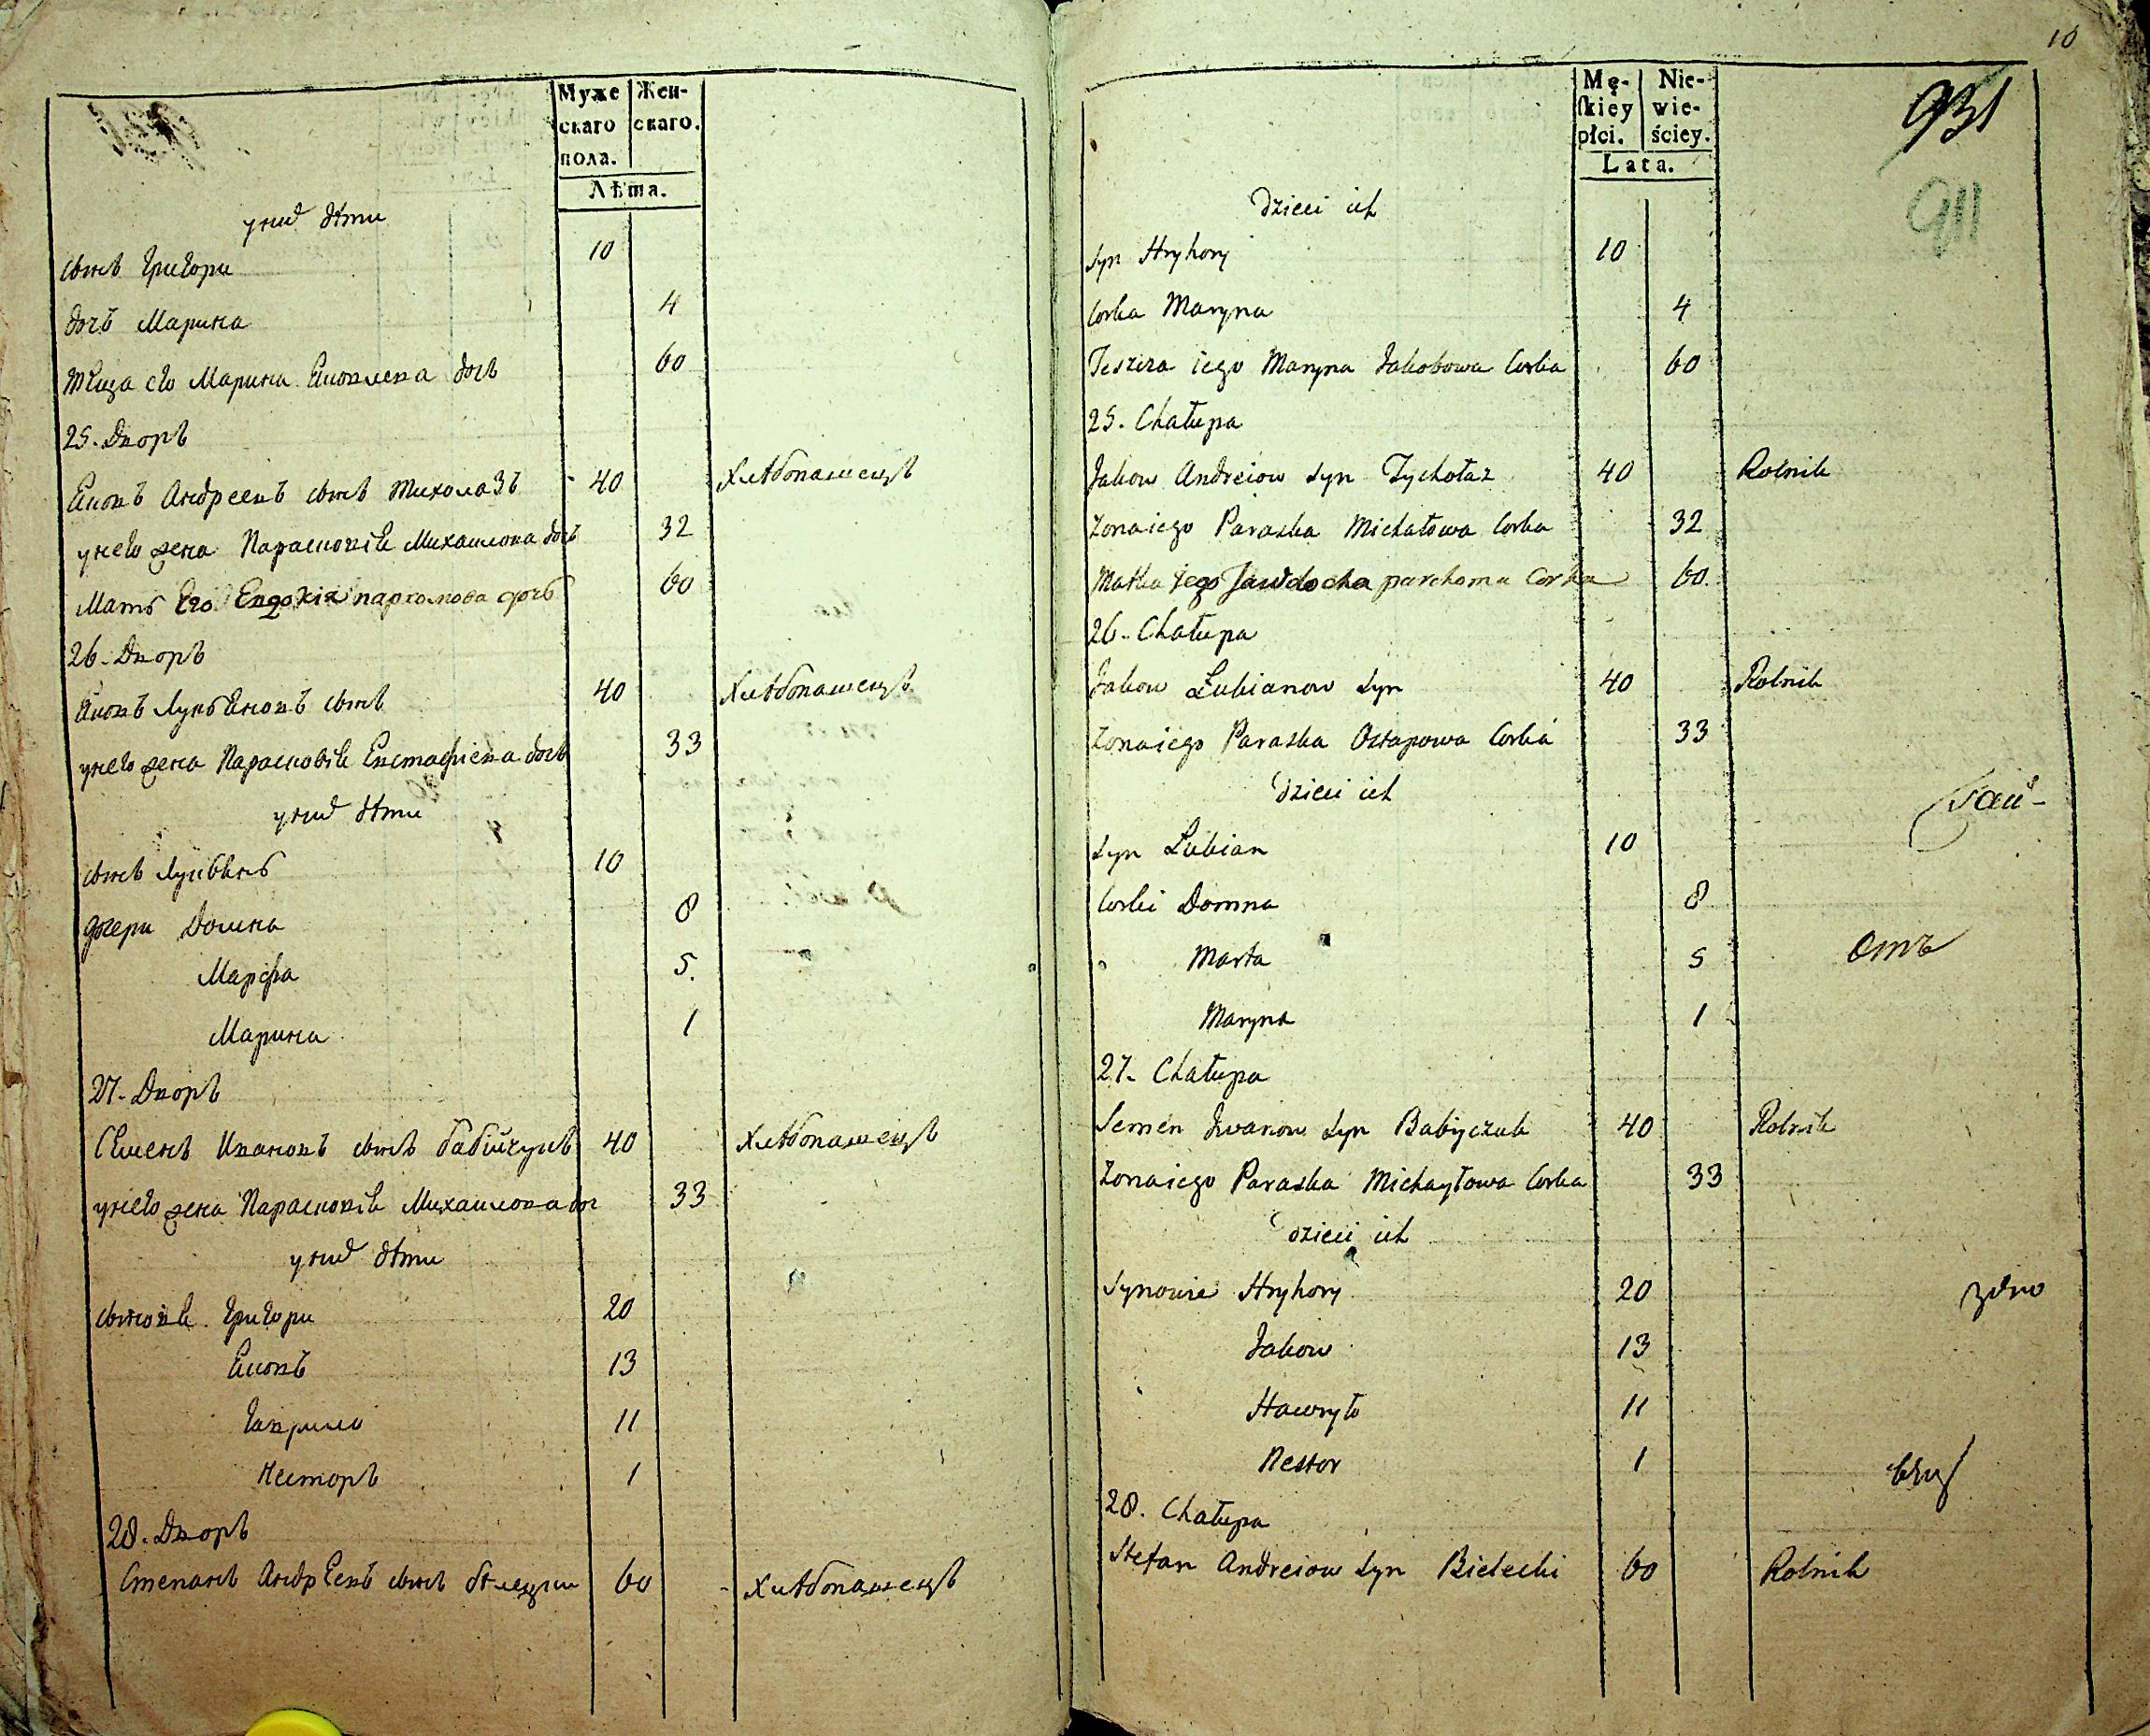 Муже Жен-
скаго скаго.
пола.
Лѣта.
у них дѣти
сынъ Григори 10
дочь Марина 4
тѣща его Марина Яковлева дочь 60
25. Дворъ
Яковъ Андреевъ сынъ Тихолазъ 40 Хлѣбопашецъ
у него жена Парасковія Михаилова дочь 32
Мать Его Евдокія пархомова дочь 60
26. Дворъ
Яковъ Лукьяновъ сынъ 40 Хлѣбопашецъ
у него жена Парасковія Евстафіева дочь 33
у них дѣти
сынъ Лукьянъ 10
дочери Домна 8
Марфа 5.
Марина 1
27. Дворъ
Семенъ Ивановъ сынъ Бабійчукъ 40 Хлѣбопашецъ
у него жена Парасковія Михаилова доч 33
у них дѣти
сыновья Григори 20
Яковъ 13
Гаврило 11
Несторъ 1
28. Дворъ
Степанъ Андреевъ сынъ бѣлецки 60 Хлѣбопашецъ
10
931
911
Mę- Nie-
skiey wie-
płci. ściey.
Lata.
dzieci ich
syn Hryhory 10
Corka Maryna 4
Teszcza iego Maryna Jakobowa Corka 60
25. Chałupa
Jakow Andreiow syn Tychołaz 40 Rolnik
żona iego Paraska Michałowa Corka 32
Matka iego Jawdocha parchoma Corka 60
26. Chałupa
Jakow Łukianow syn 40 Rolnik
żona iego Paraska Ostapowa Corka 33
dzieci ich
syn Łukian 10
Corki Domna 8
Marta 5
отъ
Maryna 1
27. Chałupa
Semen Iwanow syn Babiyczuk 40 Rolnik
żona iego Paraska Michayłowa Corka 33
dzieci ich
Synowie Hryhory 20
Jakow 13
Hawryło 11
Nestor 1
28. Chałupa
Stefan Andreiow syn Bielecki 60 Rolnik